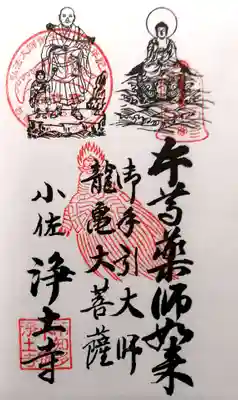 本尊薬師如来
御手引大師
龍亀大菩薩
小佐 浄土寺